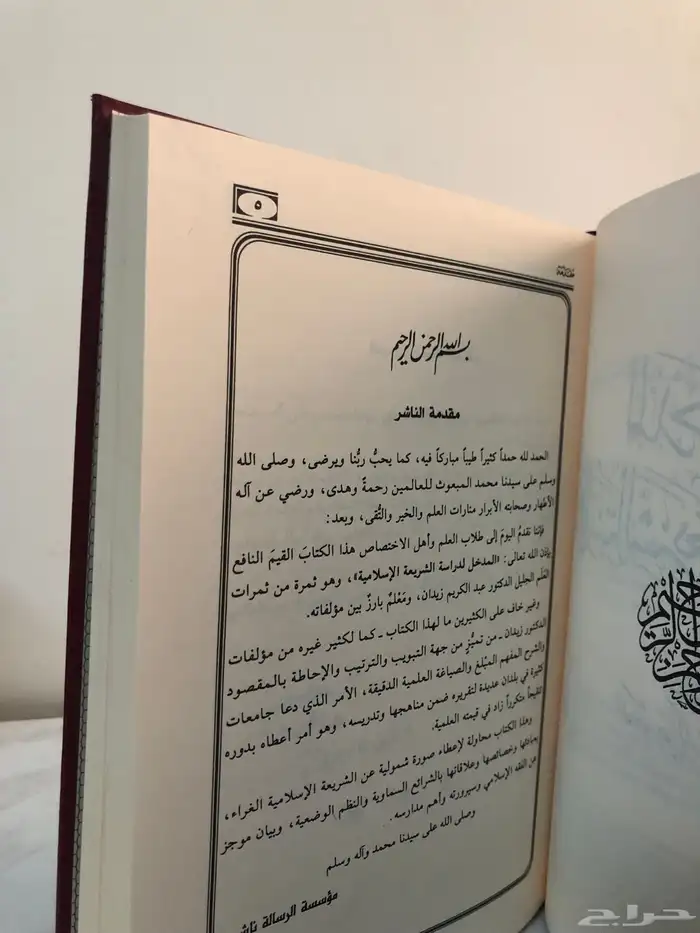 ٥
مقدمة
بسم الله الرحمن الرحيم
مقدمة الناشر
الحمد لله حمداً كثيراً طيباً مباركاً فيه، كما يحبُّ ربُّنا ويرضى، وصلى الله
وسلم على سيدنا محمد المبعوث للعالمين رحمةً وهدى، ورضي عن آله
الأطهار وصحابته الأبرار منارات العلم والخير والتُّقى، وبعد:
فإننا نقدمُ اليومَ إلى طلاب العلم وأهل الاختصاص هذا الكتابَ القيمَ النافع
بإذن الله تعالى: «المدخل لدراسة الشريعة الإسلامية»، وهو ثمرة من ثمرات
العَلَم الجليل الدكتور عبد الكريم زيدان، ومَعْلمٌ بارزٌ بين مؤلفاته.
وغير خاف على الكثيرين ما لهذا الكتاب ـ كما لكثير غيره من مؤلفات
الدكتور زيدان ـ من تميُّزٍ من جهة التبويب والترتيب والإحاطة بالمقصود
والشرح المفهم المُبْلغ والصياغة العلمية الدقيقة، الأمر الذي دعا جامعات
كثيرة في بلدان عديدة لتقريره ضمن مناهجها وتدريسه، وهو أمر أعطاه بدوره
تنقيحاً متكرراً زاد في قيمته العلمية.
وهذا الكتاب محاولة لإعطاء صورة شمولية عن الشريعة الإسلامية الغراء،
بمبادئها وخصائصها وعلاقاتها بالشرائع السماوية والنظم الوضعية، وبيان موجز
عن الفقه الإسلامي وسيرورته وأهم مدارسه.
وصلى الله على سيدنا محمد وآله وسلم
مؤسسة الرسالة ناشرون
حراج